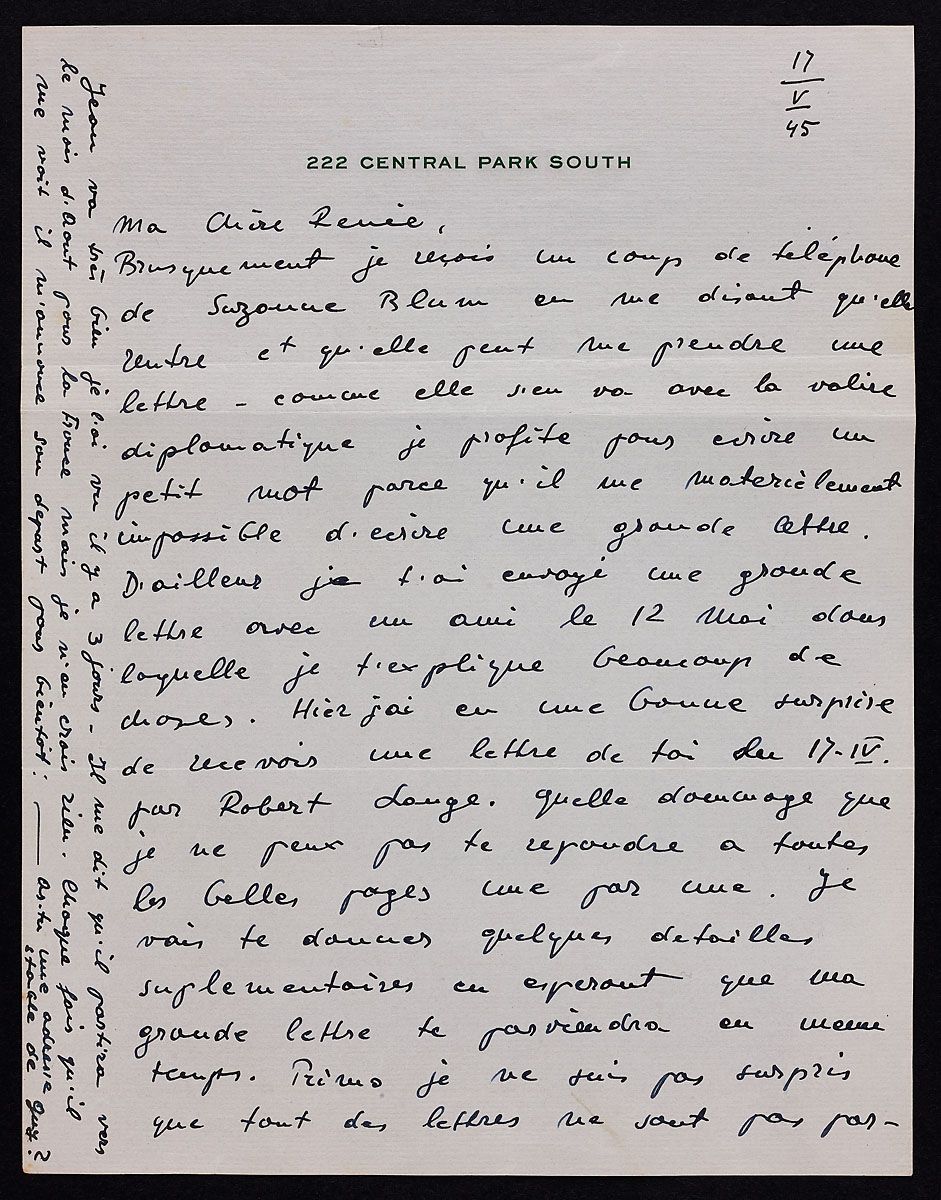 17
V
45
222 CENTRAL PARK SOUTH
Ma Chère Renée,
Brusquement je reçois un coup de téléphone
de Suzanne Blum en me disant qu'elle
rentre et qu'elle peut me prendre une
lettre – comme elle s'en va avec la valise
diplomatique je profite pour ecrire un
petit mot parce qu'il me materièlement
impossible d'ecrire une grande lettre.
D'ailleur je t'ai envoyé une grande
lettre avec un ami le 12 Mai dans
laquelle je t'explique beaucoup de
choses. Hier j'ai eu une bonne surprise
de recevoir une lettre de toi du 17-IV.
par Robert Lange. Quelle dommage que
je ne peux pas te repondre a toutes
les belles pages une par une. Je
vais te donner quelques detailles
suplementaires en esperant que ma
grande lettre te parviendra en meme
temps. Primo je ne suis pas surpris
que tout des lettres ne sont pas par-
Jean va très bien je l'ai vu il y a 3 jours – Il me dit qu'il partira vers
le mois d'Aout pour la France mais je n'en crois rien. Chaque fois qu'il
me voit il m'annonce son depart pour bientôt! — As-tu une adresse
stable de Guy?